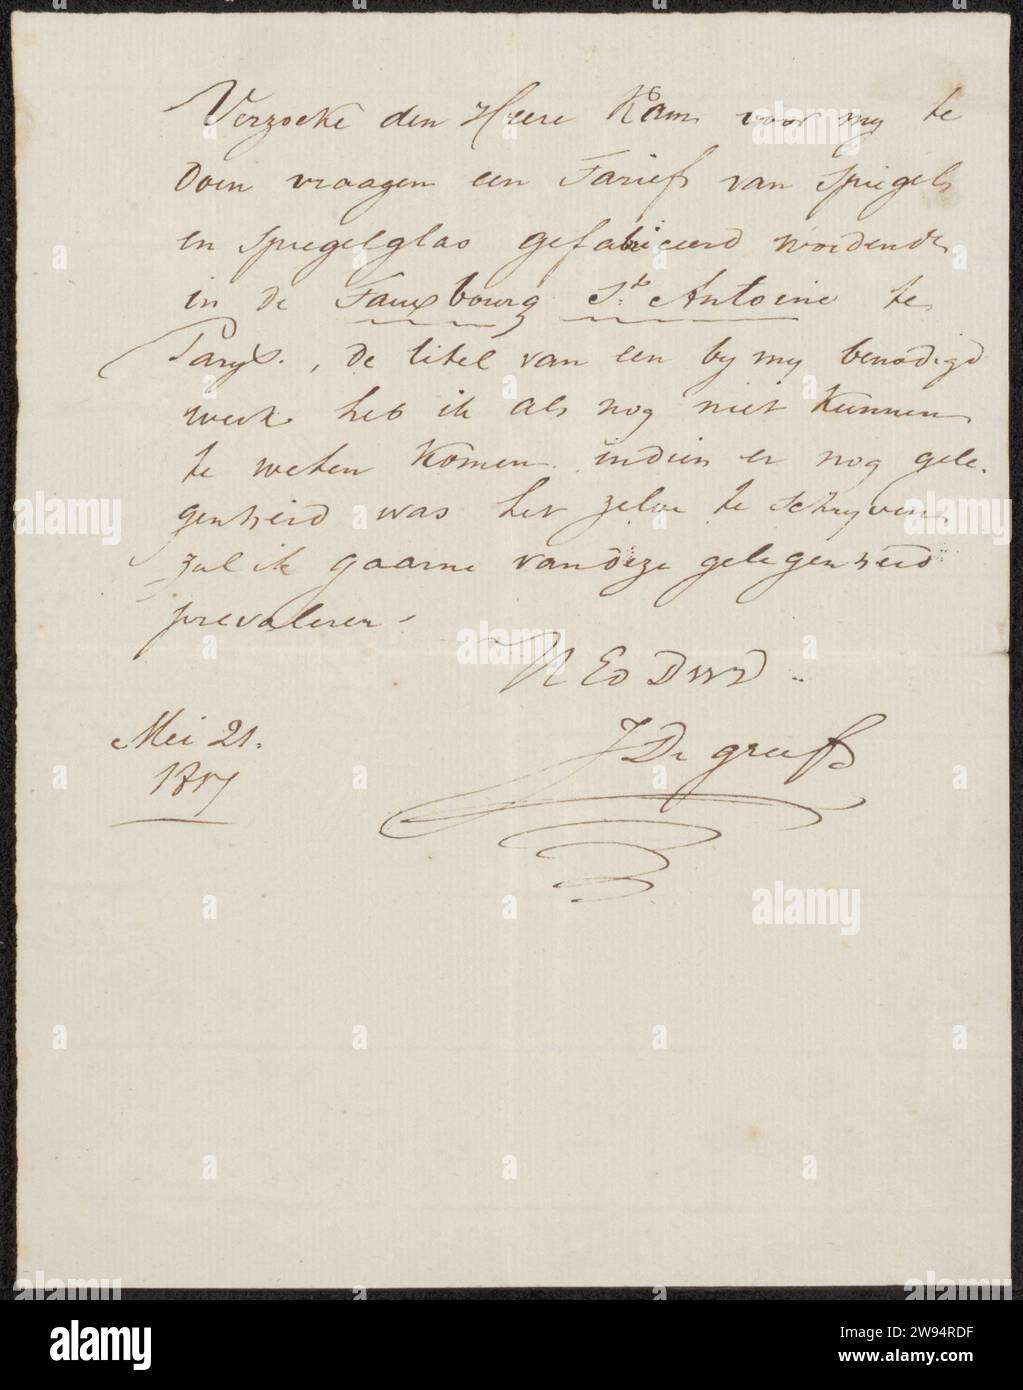 Verzoeke den Heere Kam voor my te
doen vraagen een Tarief van Spiegels
en Spiegelglas gefabriceerd wordende
in de Fauxbourg St. Antoine te
Parys, de titel van een by my benodigd
werk heb ik als nog niet kunnen
te weten komen. indien er nog gele-
genheid was het zelve te schryven
zal ik gaarne van deze gelegenheid
prevaleren.
UEd DWD
J De Greef
Mei 21.
alamy
Image ID: 2W94RDF
www.alamy.com